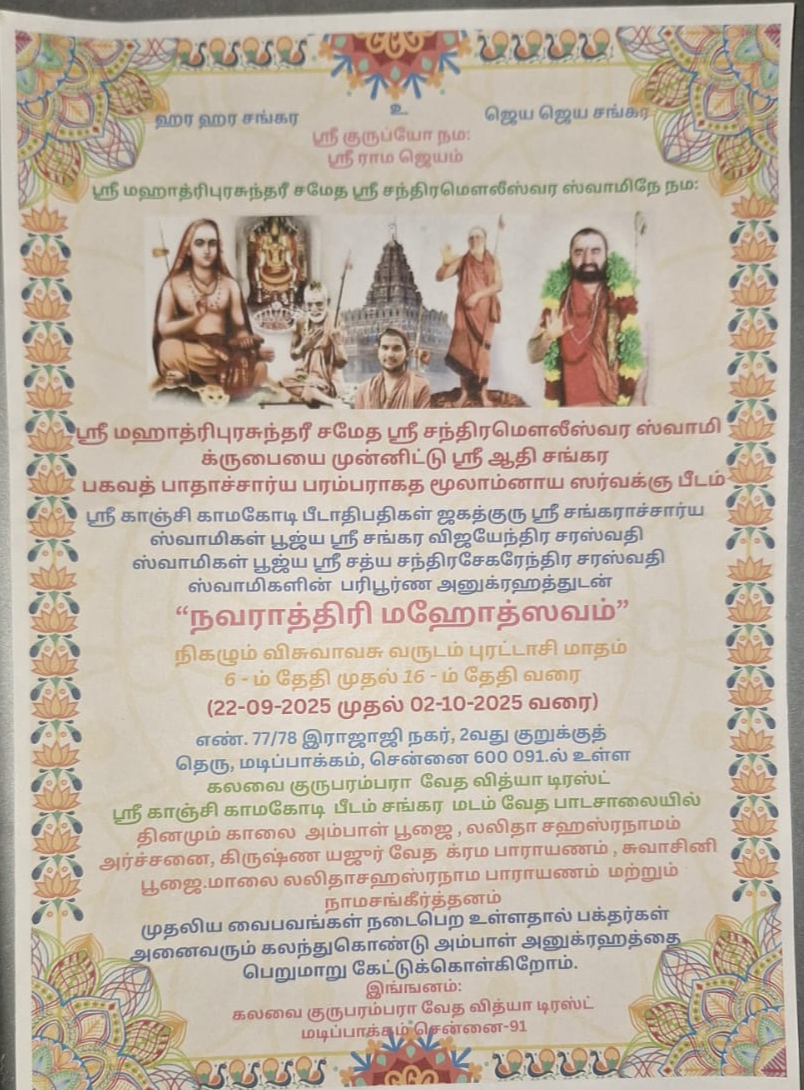 உ
ஹர ஹர சங்கர ஜெய ஜெய சங்கர
ஸ்ரீ குருப்யோ நம:
ஸ்ரீ ராம ஜெயம்
ஸ்ரீ மஹாத்ரிபுரசுந்தரீ சமேத ஸ்ரீ சந்திரமௌலீஸ்வர ஸ்வாமிநே நம:
ஸ்ரீ மஹாத்ரிபுரசுந்தரீ சமேத ஸ்ரீ சந்திரமௌலீஸ்வர ஸ்வாமி
க்ருபையை முன்னிட்டு ஸ்ரீ ஆதி சங்கர
பகவத் பாதாச்சார்ய பரம்பராகத மூலாம்னாய ஸர்வக்ஞ பீடம்
ஸ்ரீ காஞ்சி காமகோடி பீடாதிபதிகள் ஜகத்குரு ஸ்ரீ சங்கராச்சார்ய
ஸ்வாமிகள் பூஜ்ய ஸ்ரீ சங்கர விஜயேந்திர சரஸ்வதி
ஸ்வாமிகள் பூஜ்ய ஸ்ரீ சத்ய சந்திரசேகரேந்திர சரஸ்வதி
ஸ்வாமிகளின் பரிபூர்ண அனுக்ரஹத்துடன்
“நவராத்திரி மஹோத்ஸவம்”
நிகழும் விசுவாவசு வருடம் புரட்டாசி மாதம்
6 - ம் தேதி முதல் 16 - ம் தேதி வரை
(22-09-2025 முதல் 02-10-2025 வரை)
எண். 77/78 இராஜாஜி நகர், 2வது குறுக்குத்
தெரு, மடிப்பாக்கம், சென்னை 600 091.ல் உள்ள
கலவை குருபரம்பரா வேத வித்யா டிரஸ்ட்
ஸ்ரீ காஞ்சி காமகோடி பீடம் சங்கர மடம் வேத பாடசாலையில்
தினமும் காலை அம்பாள் பூஜை , லலிதா சஹஸ்ரநாமம்
அர்ச்சனை, கிருஷ்ண யஜுர் வேத க்ரம பாராயணம் , சுவாசினி
பூஜை.மாலை லலிதாசஹஸ்ரநாம பாராயணம் மற்றும்
நாமசங்கீர்த்தனம்
முதலிய வைபவங்கள் நடைபெற உள்ளதால் பக்தர்கள்
அனைவரும் கலந்துகொண்டு அம்பாள் அனுக்ரஹத்தை
பெறுமாறு கேட்டுக்கொள்கிறோம்.
இங்ஙனம்:
கலவை குருபரம்பரா வேத வித்யா டிரஸ்ட்
மடிப்பாக்கம் சென்னை-91